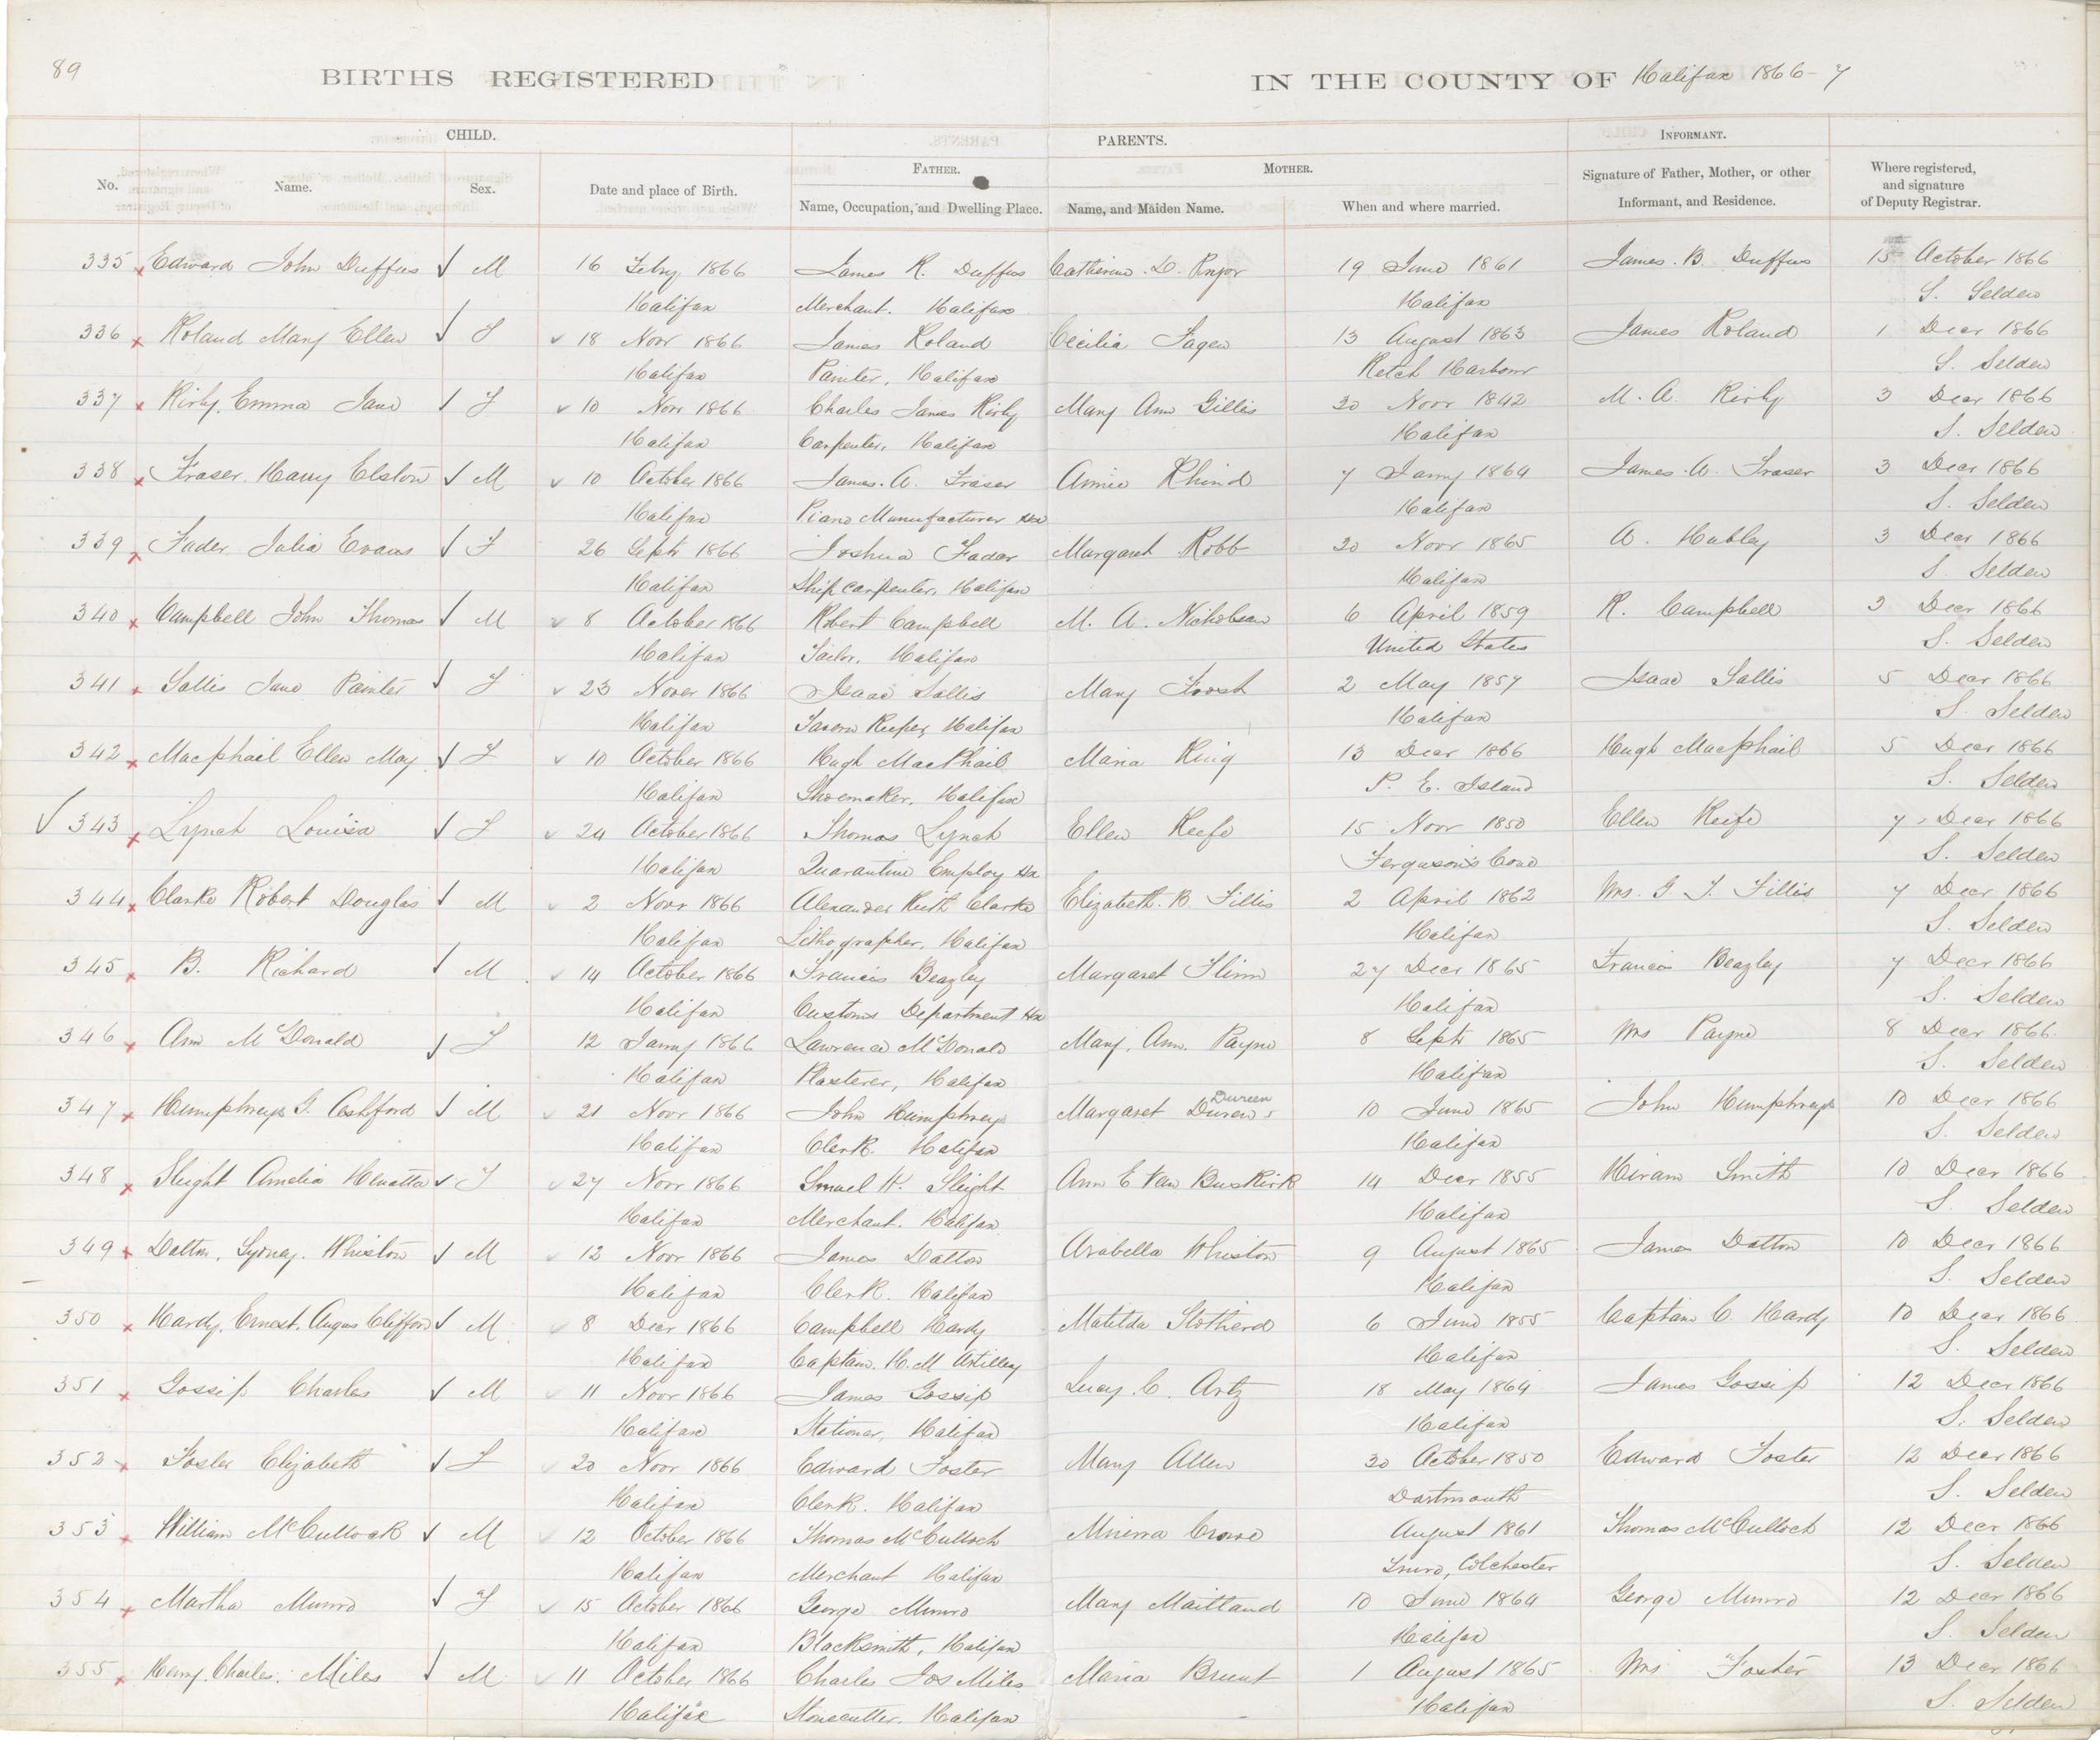 89
BIRTHS REGISTERED IN THE COUNTY OF Halifax 1866-7
CHILD. PARENTS. INFORMANT.
No. Name. Sex. Date and place of Birth. FATHER. MOTHER. Signature of Father, Mother, or other Informant, and Residence. Where registered, and signature of Deputy Registrar.
Name, Occupation, and Dwelling Place. Name, and Maiden Name. When and where married.
335 Edward John Duffus M 16 Feby 1866 James R. Duffus Catherine D. Pryor 19 June 1861 James B. Duffus 15 October 1866
Halifax Merchant. Halifax Halifax S. Selden
336 Roland Mary Ellen F 18 Novr 1866 James Roland Cecilia Fagen 13 August 1863 James Roland 1 Decr 1866
Halifax Painter, Halifax Ketch Harbour S. Selden
337 Kirby, Emma Jane F 10 Novr 1866 Charles James Kirby Mary Ann Gillis 30 Novr 1842 M. A. Kirby 3 Decr 1866
Halifax Carpenter, Halifax Halifax S. Selden
338 Fraser. Harry Elston M 10 October 1866 James. A. Fraser Annie Rhind 7 Jany 1864 James. A. Fraser 3 Decr 1866
Halifax Piano Manufacturer Hx Halifax S. Selden
339 Fader Julia Evans F 26 Septr 1866 Joshua Fader Margaret Robb 30 Novr 1865 A. Hubley 3 Decr 1866
Halifax Ship carpenter, Halifax Halifax S. Selden
340 Campbell John Thomas M 8 October 1866 Robert Campbell M. A. Nicholson 6 April 1859 R. Campbell 3 Decr 1866
Halifax Tailor, Halifax United States S. Selden
341 Sallis Jane Painter F 23 Novr 1866 Isaac Sallis Mary 2 May 1857 Isaac Sallis 5 Decr 1866
Halifax Tavern Keeper, Halifax Halifax S. Selden
342 Macphail Ellen May F 10 October 1866 Hugh MacPhail Maria King 13 Decr 1866 Hugh Macphail 5 Decr 1866
Halifax Shoemaker, Halifax P. E. Island S. Selden
343 Lynch Louisa F 24 October 1866 Thomas Lynch Ellen Keefe 15 Novr 1850 Ellen Keefe 7 Decr 1866
Halifax Quarantine Employ Hx Ferguson's Cove S. Selden
344 Clarke Robert Douglas M 2 Novr 1866 Alexander Keith Clarke Elizabeth. B. Fillis 2 April 1862 Mrs. G. J. Fillis 7 Decr 1866
Halifax Lithographer, Halifax Halifax S. Selden
345 B. Richard M 14 October 1866 Francis Beazley Margaret Flinn 27 Decr 1865 Francis Beazley 7 Decr 1866
Halifax Customs Department Hx Halifax S. Selden
346 Ann McDonald F 12 Jany 1866 Lawrence McDonald Mary. Ann. Payne 8 Septr 1865 Mrs Payne 8 Decr 1866
Halifax Plasterer, Halifax Halifax S. Selden
347 Humphreys G. Ashford M 21 Novr 1866 John Humphreys Margaret Dureen 10 June 1865 John Humphreys 10 Decr 1866
Halifax Clerk. Halifax Halifax S. Selden
348 Sleight Amelia Henetta F 27 Novr 1866 Smuel H. Sleight Ann E Van Buskirk 14 Decr 1855 Hiram Smith 10 Decr 1866
Halifax Merchant. Halifax Halifax S. Selden
349 Dalton, Sydney. Whiston M 12 Novr 1866 James Dalton Arabella Whiston 9 August 1865 James Dalton 10 Decr 1866
Halifax Clerk. Halifax Halifax S. Selden
350 Hardy. Ernest. Angus Clifford M 8 Decr 1866 Campbell Hardy Matilda Stotherd 6 June 1855 Captain C. Hardy 10 Decr 1866
Halifax Captain. H. M Artillery Halifax S. Selden
351 Gossip Charles M 11 Novr 1866 James Gossip Lucy. C. Artz 18 May 1864 James Gossip 12 Decr 1866
Halifax Stationer, Halifax Halifax S. Selden
352 Foster Elizabeth F 20 Novr 1866 Edward Foster Mary Allen 30 October 1850 Edward Foster 12 Decr 1866
Halifax Clerk. Halifax Dartmouth S. Selden
353 William McCullock M 12 October 1866 Thomas McCulloch Minerva Crowe August 1861 Thomas McCulloch 12 Decr 1866
Halifax Merchant Halifax Truro, Colchester S. Selden
354 Martha Munro F 15 October 1866 George Munro Mary Maitland 10 June 1864 George Munro 12 Decr 1866
Halifax Blacksmith, Halifax Halifax S. Selden
355 Henry. Charles. Miles M 11 October 1866 Charles Jos Miles Maria Brunt 1 August 1865 Mrs Foster 13 Decr 1866
Halifax Stonecutter. Halifax Halifax S. Selden